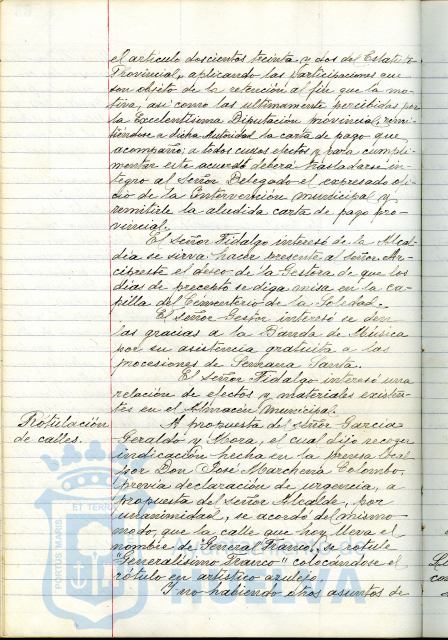 el artículo doscientos treinta y dos del Estatuto
Provincial, aplicando las participaciones que
son objeto de la retención al fin que la mo-
tiva, así como las ultimamente percibidas por
la Excelentísima Diputación provincial, remi-
tiéndose a dicha Autoridad la carta de pago que
acompaña; a todos cuyos efectos y para cumpli-
mentar este acuerdo deberá trasladarse ín-
tegro al Señor Delegado el expresado ofi-
cio de la Intervención municipal y
remitirle la aludida carta de pago pro-
vincial.
El Señor Fidalgo interesó de la Alcal-
día se sirva hacer presente al Señor Ar-
cipreste el deseo de la Gestora de que los
días de precepto se diga misa en la ca-
pilla del Cementerio de la Soledad.
El Señor Gestor interesó se den
las gracias a la Banda de Música
por su asistencia gratuita a las
procesiones de Semana Santa.
El Señor Fidalgo interesó una
relación de efectos y materiales existen-
tes en el Almacén municipal.
Rotulación
de calles.
A propuesta del Señor García
Geraldo y Mora, el cual dijo recoger
indicación hecha en la prensa local
por Don José Marchena Colombo,
previa declaración de urgencia, a
propuesta del Señor Alcalde, por
unanimidad, se acordó del mismo
modo, que la calle que hoy lleva el
nombre de General Franco, se rotule
"Generalísimo Franco" colocándose el
rótulo en artístico azulejo.
Y no habiendo otros asuntos de
PORTUS MARIS
ET TERRAE
HUELVA